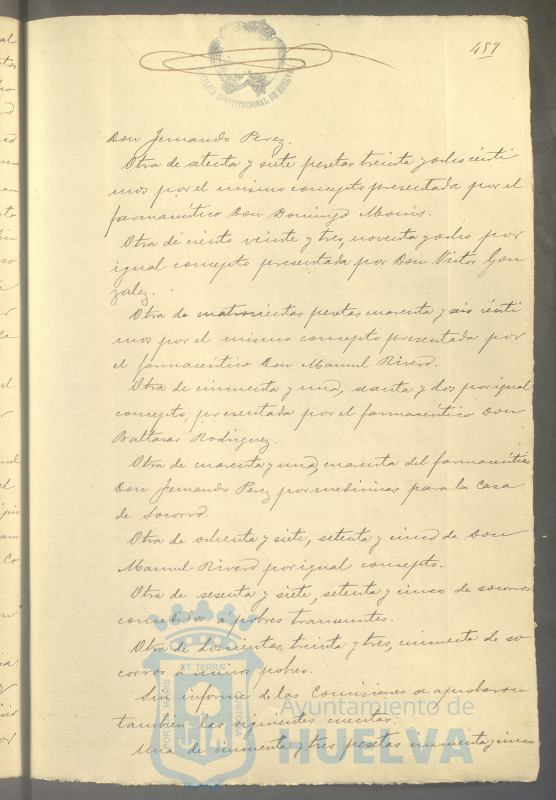 457
ALCALDIA CONSTITUCIONAL DE HUELVA
Don Fernando Perez.
Otra de setenta y siete pesetas treinta y ocho cénti
mos por el mismo concepto presentada por el
farmacéutico Don Domingo
Otra de ciento veinte y tres, noventa y ocho por
igual concepto presentada por Don Victor Gon
zalez.
Otra de cuatrocientas pesetas cuarenta y seis cénti
mos por el mismo concepto presentada por
el farmacéutico Don Manuel Rivero.
Otra de cincuenta y una, sesenta y dos por igual
concepto, presentada por el farmacéutico Don
Baltasar Rodriguez.
Otra de cuarenta y una, cuarenta del farmacéutico
Don Fernando Perez por medicinas para la Casa
de Socorro.
Otra de ochenta y siete, setenta y cinco de Don
Manuel Rivero por igual concepto.
Otra de sesenta y siete, setenta y cinco de socorros
concedidos á pobres transeuntes.
Otra de doscientas treinta y tres, cincuenta de so
corros a niños pobres.
Sin informe de las Comisiones se aprobaron
tambien las siguientes cuentas:
Una de cincuenta y tres pesetas cincuenta y cinco
ET TERRÆ
Ayuntamiento de
HUELVA